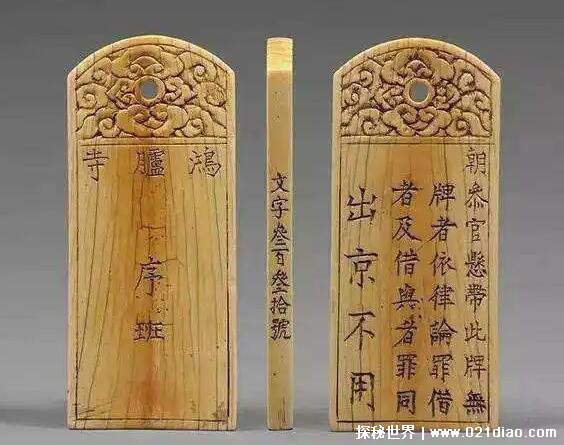 鴻臚寺
序班
文字叄百叄拾號
朝叅官懸帶此牌無
牌者依律論罪借
者及借與者罪同
出京不用
探秘世界 | www.021diao.com